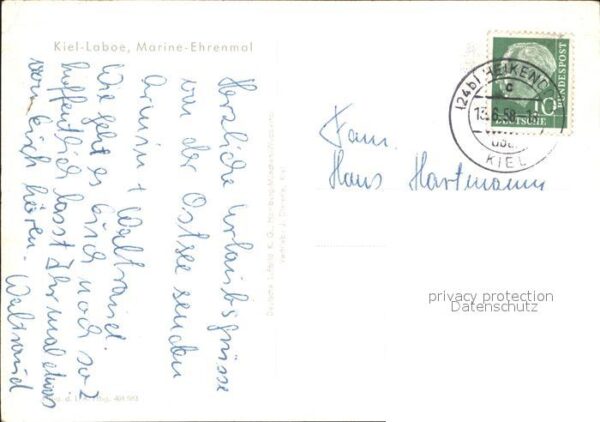 Kiel-Laboe, Marine-Ehrenmal
Herzliche Urlaubsgrüsse
von der Ostsee senden
Armin + Waltraud.
Wie geht es Euch noch so?
hoffentlich lasst Ihr mal etwas
von Euch hören. Waltraud
Fam.
Hans Hartmann
(24b) HEIKENDORF
c
13.6.58
über
KIEL
10
DEUTSCHE
BUNDESPOST
privacy protection
Datenschutz